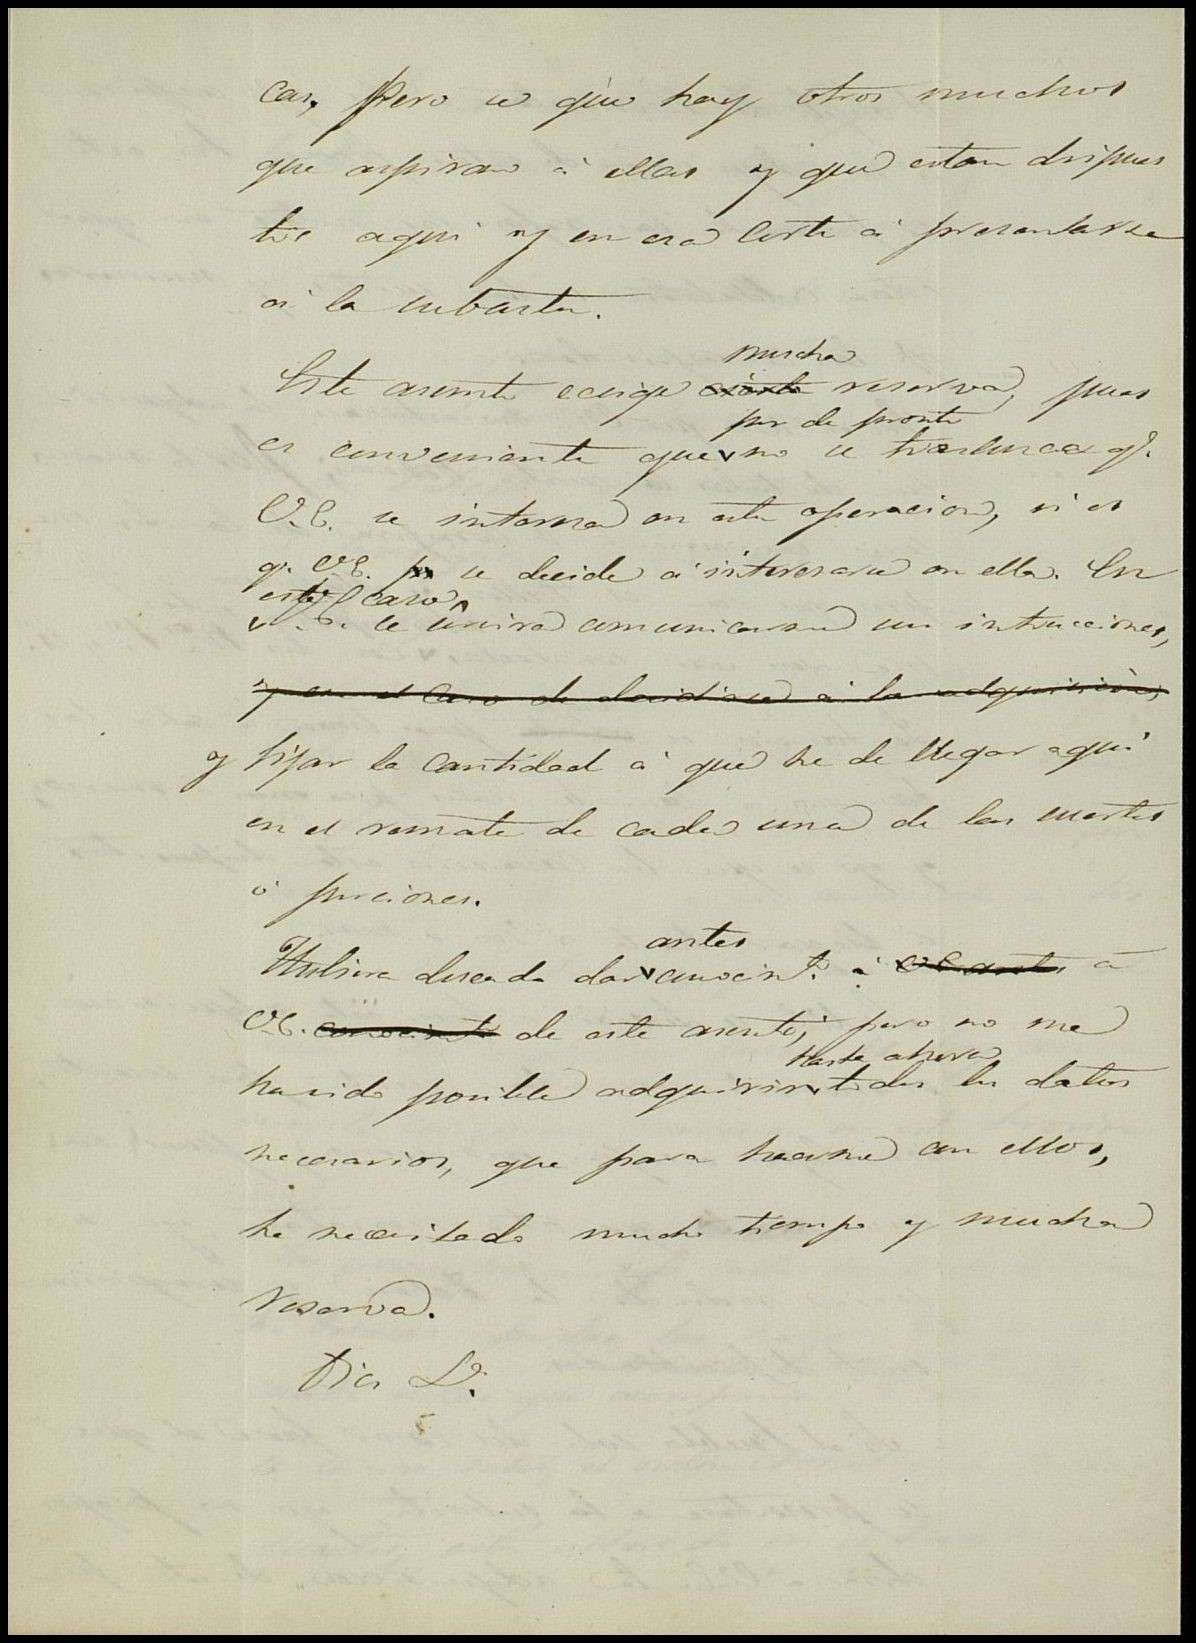 cas, pero se que hay otros muchos
que aspiran á ellas y que estan dispues
tos aqui y en esa Corte á presentarse
á la subasta.
mucha
Este asunto ecsige cierta reserva, pues
por de pronto
es conveniente que no se trasluzca q.e
V.E. se interesa en esta operacion, si es
q.e V.E. se decide á interesarse en ella. En
este caso,
V.E. se servirá comunicarme sus intrucciones,
y en el caso de decidirse á la adquisicion,
y fijar la cantidad á que he de llegar aqui
en el remate de cada una de las suertes
ó porciones.
antes
Hubiera deseado dar conocim.to á V.E. antes á
V.E. conocimto de este asunto; pero no me
hasta ahora
ha sido posible adquirir todos los datos
necesarios, que para hacerme con ellos,
he necesitado mucho tiempo y mucha
reserva.
Dios &.